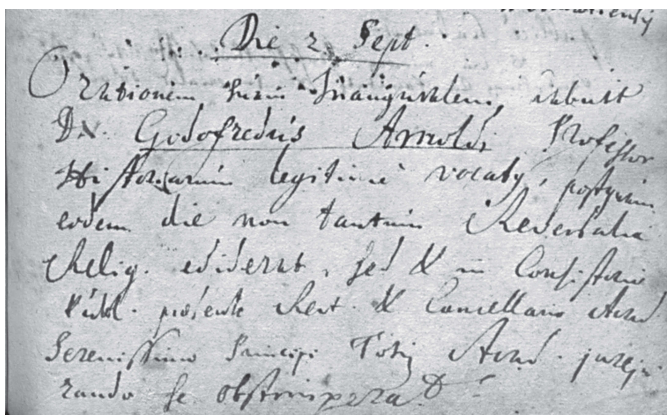 Die 2 Sept.
Orationem suam Inauguralem, habuit
Dn. Godofredus Arnoldi Professor
Historiarum legitimè vocatq, postquam
eodem die non tantum Reversalia
Relig. ediderat, sed & in Consistorio
publ. præsente Rect. & Cancellario Acad
Serenissimo Principi Totiq Acad. jureju-
rando se obstrinxerat.